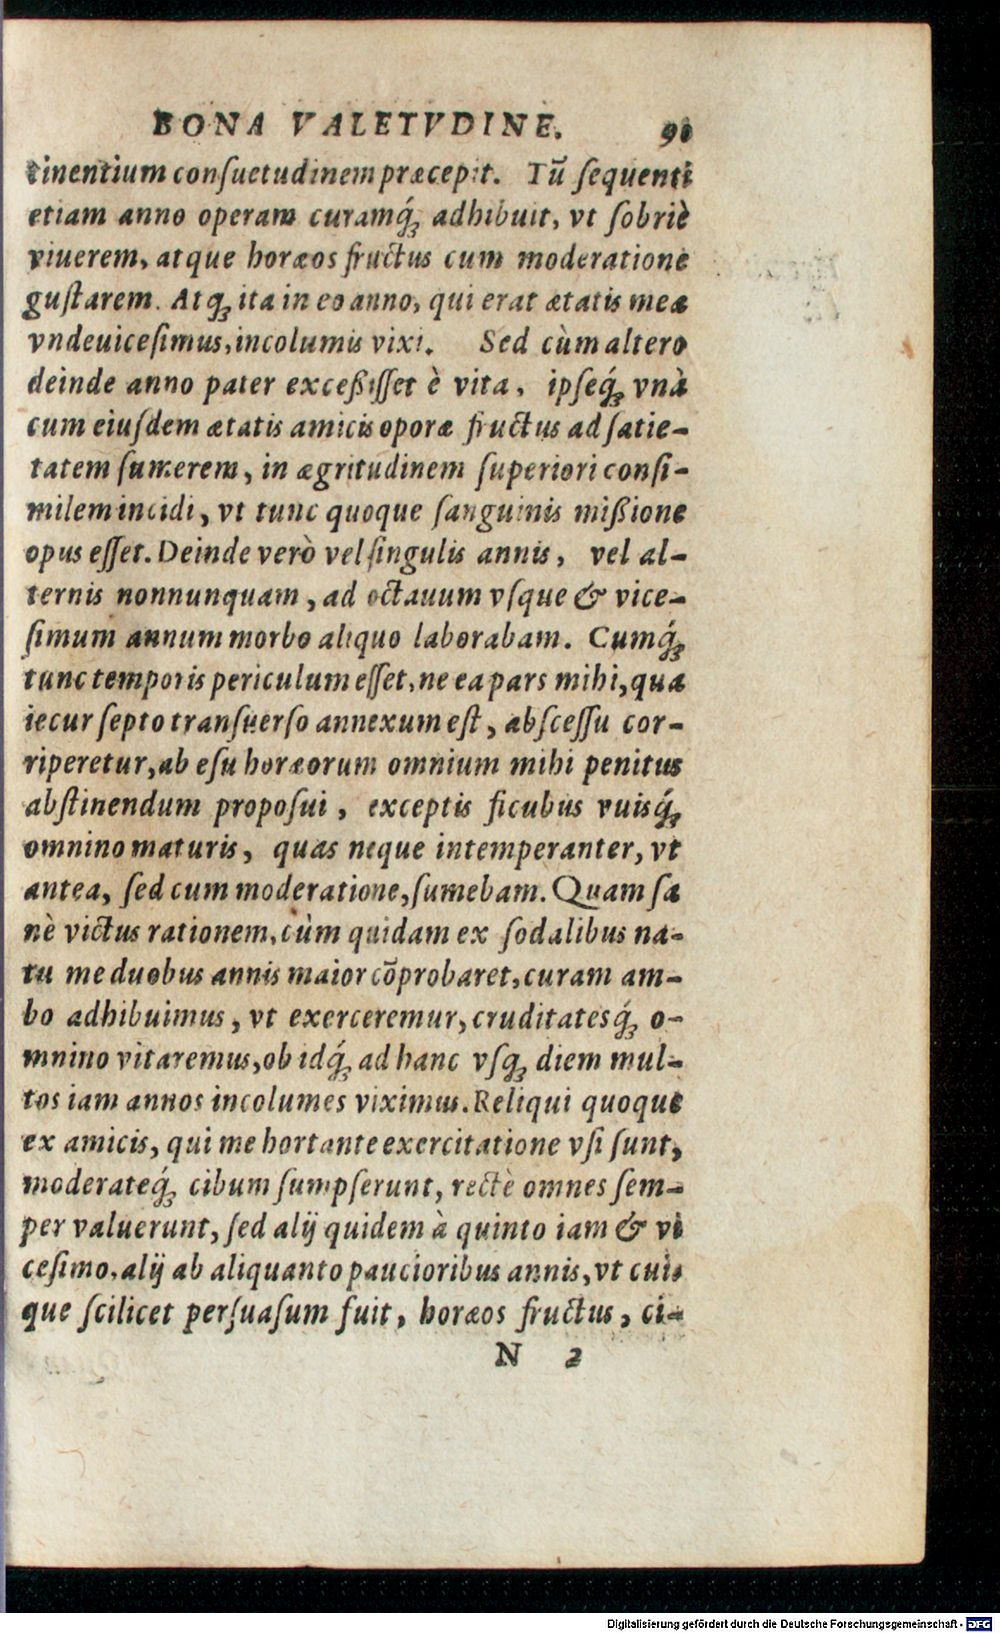 BONA VALETVDINE. 98
tinentium conſuetudinem præcepit. Tū ſequenti
etiam anno operam curamq́ꝫ adhibuit, vt ſobriè
viuerem, atque horæos fructus cum moderatione
guſtarem. Atqꝫ ita in eo anno, qui erat ætatis meæ
vndeuiceſimus, incolumis vixi. Sed cùm altero
deinde anno pater exceßiſſet è vita, ipſeq́ꝫ vnà
cum eiuſdem ætatis amicis oporæ fructus ad ſatie-
tatem ſumerem, in ægritudinem ſuperiori conſi-
milem incidi, vt tunc quoque ſanguinis mißione
opus eſſet. Deinde verò vel ſingulis annis, vel al-
ternis nonnunquam, ad octauum vſque & vice-
ſimum annum morbo aliquo laborabam. Cumq́ꝫ
tunc temporis periculum eſſet, ne ea pars mihi, qua
iecur ſepto tranſuerſo annexum eſt, abſceſſu cor-
riperetur, ab eſu horæorum omnium mihi penitus
abſtinendum propoſui, exceptis ficubus vuisq́ꝫ
omnino maturis, quas neque intemperanter, vt
antea, ſed cum moderatione, ſumebam. Quam ſa
nè victus rationem, cùm quidam ex ſodalibus na-
tu me duobus annis maior cōprobaret, curam am-
bo adhibuimus, vt exerceremur, cruditatesq́ꝫ o-
mnino vitaremus, ob idq́ꝫ ad hanc vſqꝫ diem mul-
tos iam annos incolumes viximus. Reliqui quoque
ex amicis, qui me hortante exercitatione vſi ſunt,
moderateq́ꝫ cibum ſumpſerunt, rectè omnes ſem-
per valuerunt, ſed alij quidem à quinto iam & vi
ceſimo, alij ab aliquanto paucioribus annis, vt cui-
que ſcilicet perſuaſum fuit, horæos fructus, ci-
N 2
Digitalisierung gefördert durch die Deutsche Forschungsgemeinschaft - DFG